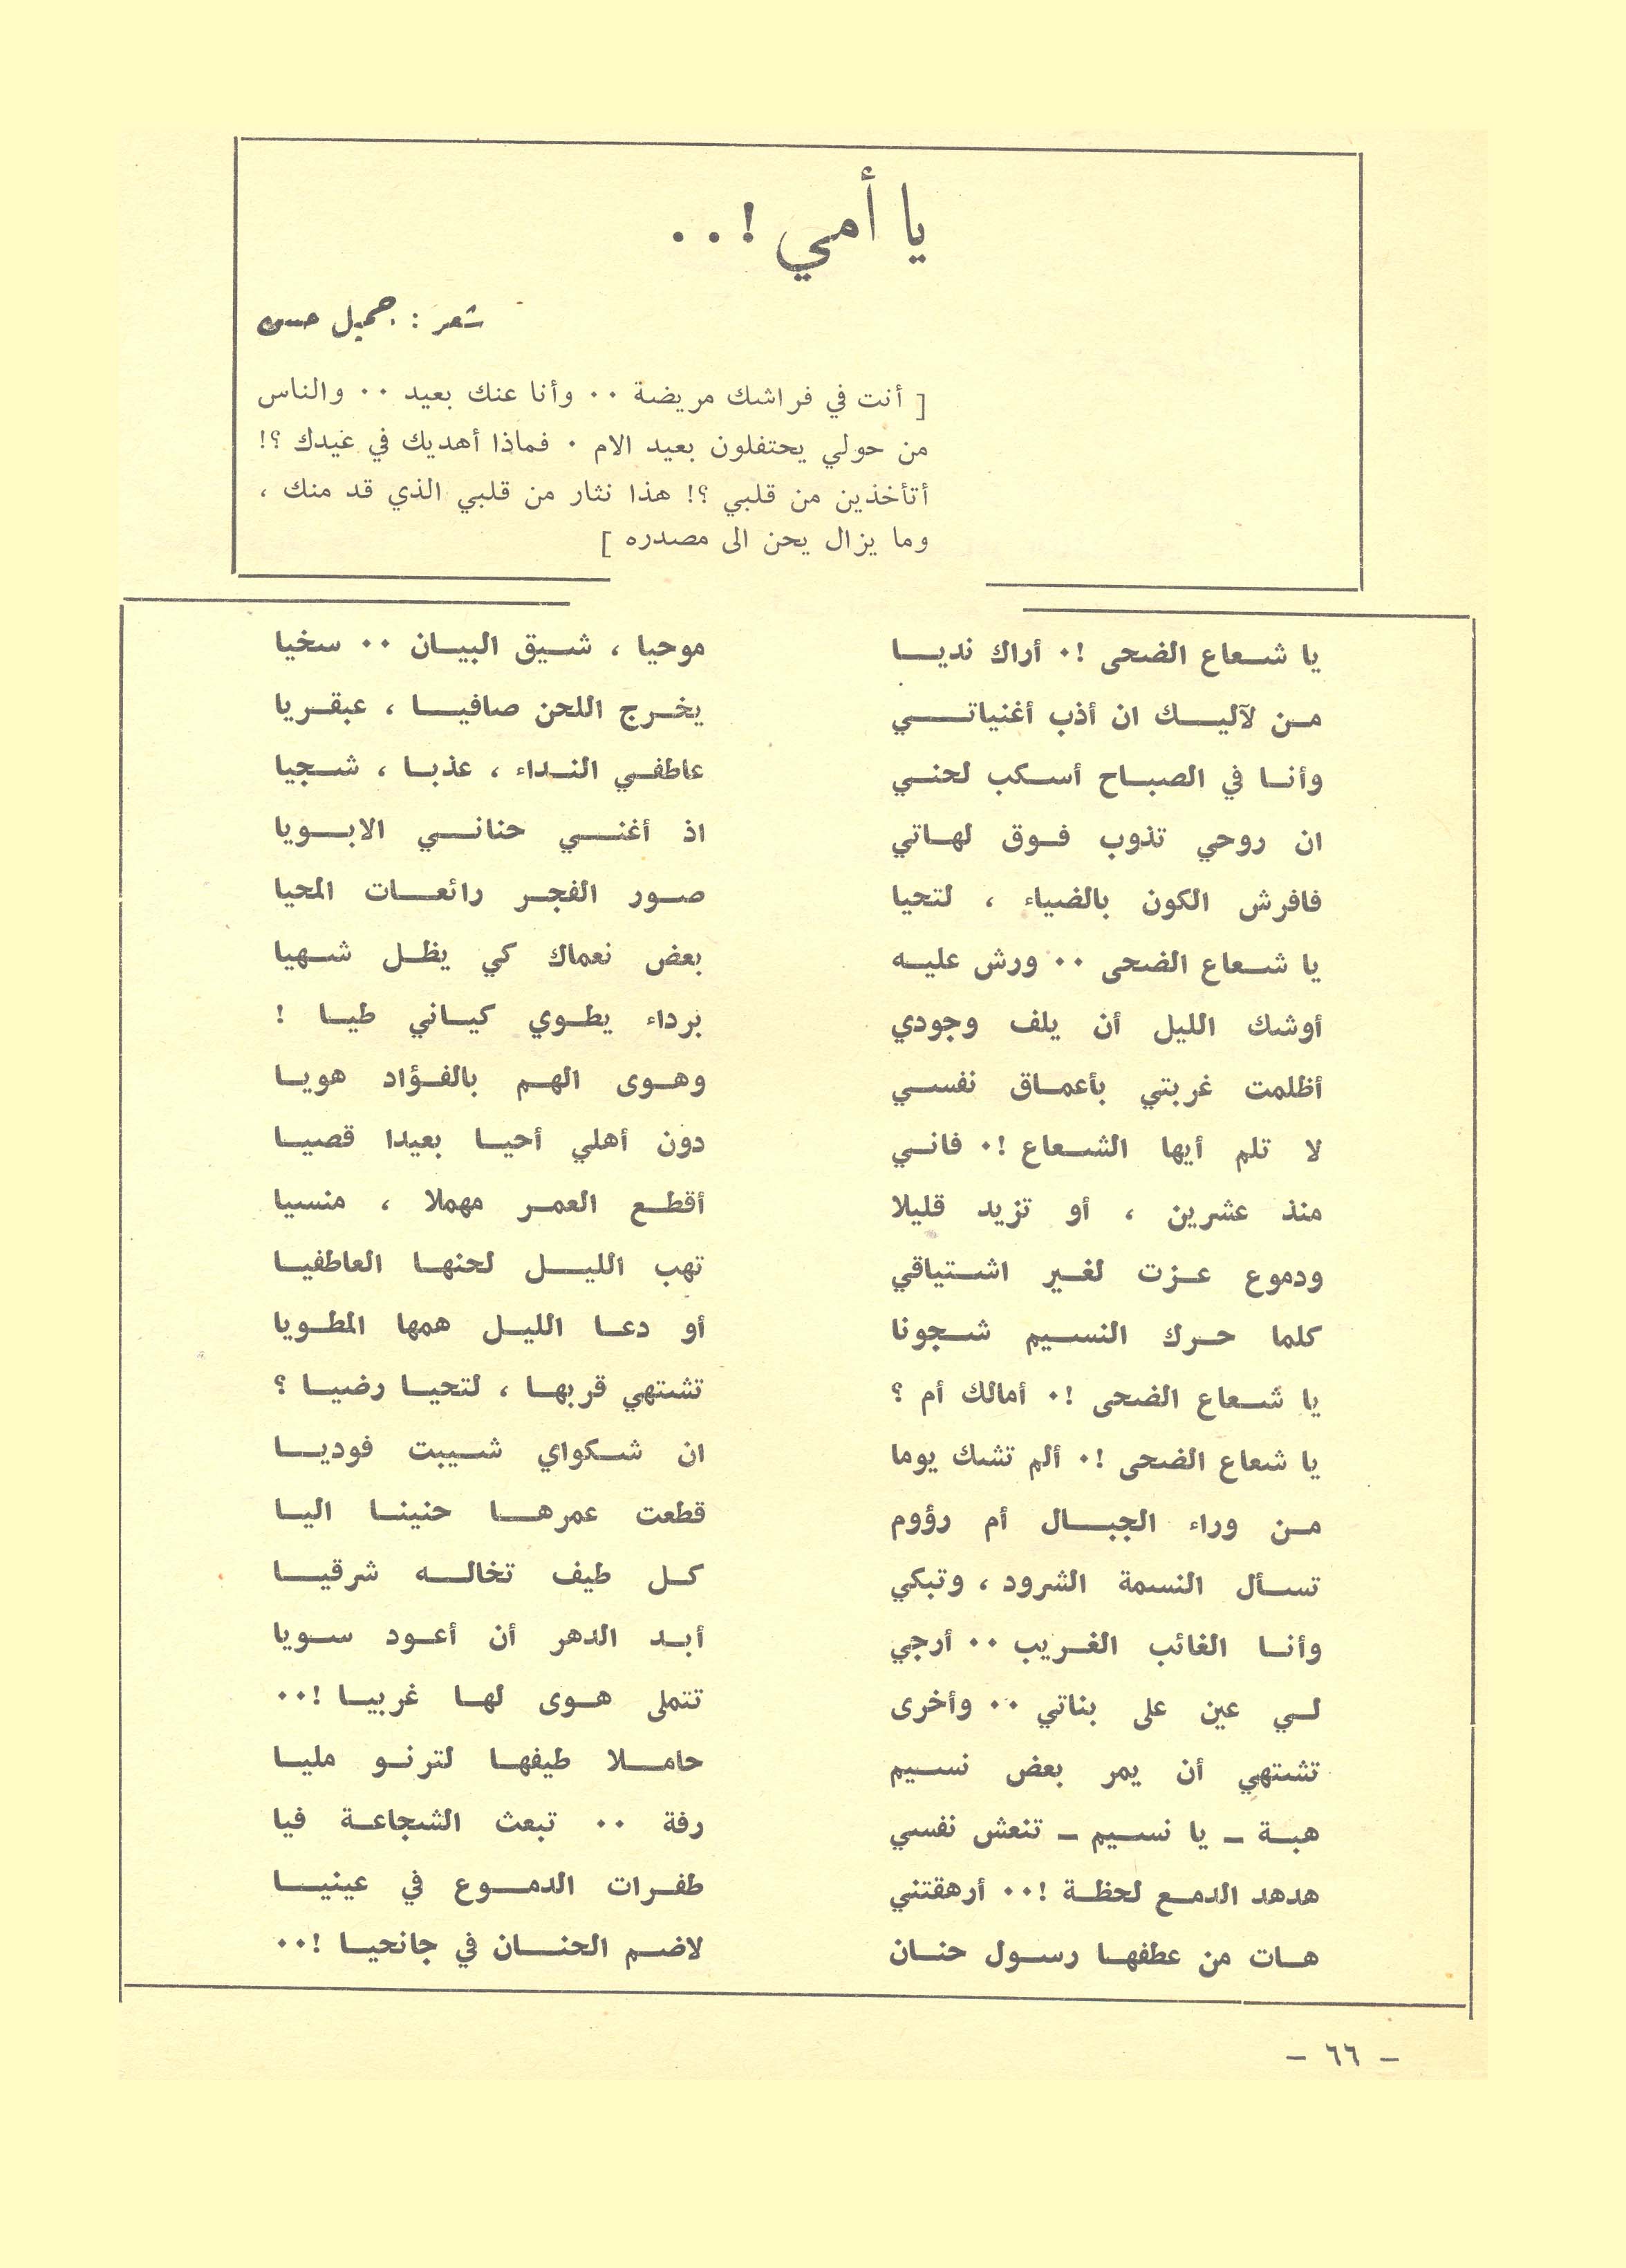 يا أمي !..
شعر : جميل حسن
[ أنت في فراشك مريضة .. وأنا عنك بعيد .. والناس
من حولي يحتفلون بعيد الام . فماذا أهديك في عيدك ؟!
أتأخذين من قلبي ؟! هذا نثار من قلبي الذي قد منك ،
وما يزال يحن الى مصدره ]
يا شعاع الضحى !. أراك نديا موحيا ، شيق البيان .. سخيا
من لآليك ان أذب أغنياتي يخرج اللحن صافيا ، عبقريا
وأنا في الصباح أسكب لحني عاطفي النداء ، عذبا ، شجيا
ان روحي تذوب فوق لهاتي اذ أغني حناني الابويا
فافرش الكون بالضياء ، لتحيا صور الفجر رائعات المحيا
يا شعاع الضحى .. ورش عليه بعض نعماك كي يظل شهيا
أوشك الليل أن يلف وجودي برداء يطوي كياني طيا !
أظلمت غربتي بأعماق نفسي وهوى الهم بالفؤاد هويا
لا تلم أيها الشعاع !. فاني دون أهلي أحيا بعيدا قصيا
منذ عشرين ، أو تزيد قليلا أقطع العمر مهملا ، منسيا
ودموع عزت لغير اشتياقي تهب الليل لحنها العاطفيا
كلما حرك النسيم شجونا أو دعا الليل همها المطويا
يا شعاع الضحى !. أمالك أم ؟ تشتهي قربها ، لتحيا رضيا ؟
يا شعاع الضحى !. ألم تشك يوما ان شكواي شيبت فوديا
من وراء الجبال أم رؤوم قطعت عمرها حنينا اليا
تسأل النسمة الشرود ، وتبكي كل طيف تخاله شرقيا
وأنا الغائب الغريب .. أرجي أبد الدهر أن أعود سويا
لي عين على بناتي .. وأخرى تتملى هوى لها غربيا !..
تشتهي أن يمر بعض نسيم حاملا طيفها لترنو مليا
هبة ــ يا نسيم ــ تنعش نفسي رفة .. تبعث الشجاعة فيا
هدهد الدمع لحظة !.. أرهقتني طفرات الدموع في عينيا
هات من عطفها رسول حنان لاضم الحنان في جانحيا !..
ــ ٦٦ ــ